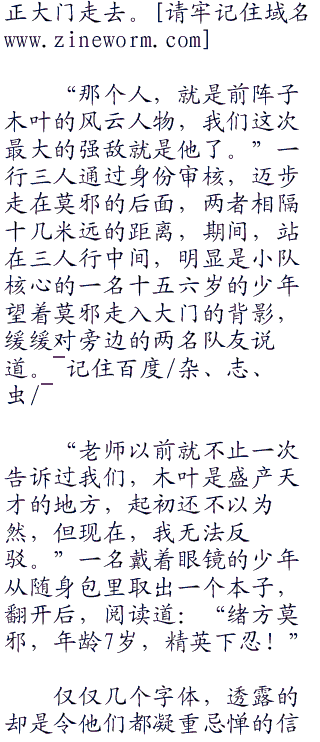 正大门走去。[请牢记住域名
www.zineworm.com]
“那个人，就是前阵子
木叶的风云人物，我们这次
最大的强敌就是他了。”一
行三人通过身份审核，迈步
走在莫邪的后面，两者相隔
十几米远的距离，期间，站
在三人行中间，明显是小队
核心的一名十五六岁的少年
望着莫邪走入大门的背影，
缓缓对旁边的两名队友说
道。¯记住百度/杂、志、
虫/¯
“老师以前就不止一次
告诉过我们，木叶是盛产天
才的地方，起初还不以为
然，但现在，我无法反
驳。”一名戴着眼镜的少年
从随身包里取出一个本子，
翻开后，阅读道：“绪方莫
邪，年龄7岁，精英下忍！”
仅仅几个字体，透露的
却是令他们都凝重忌惮的信